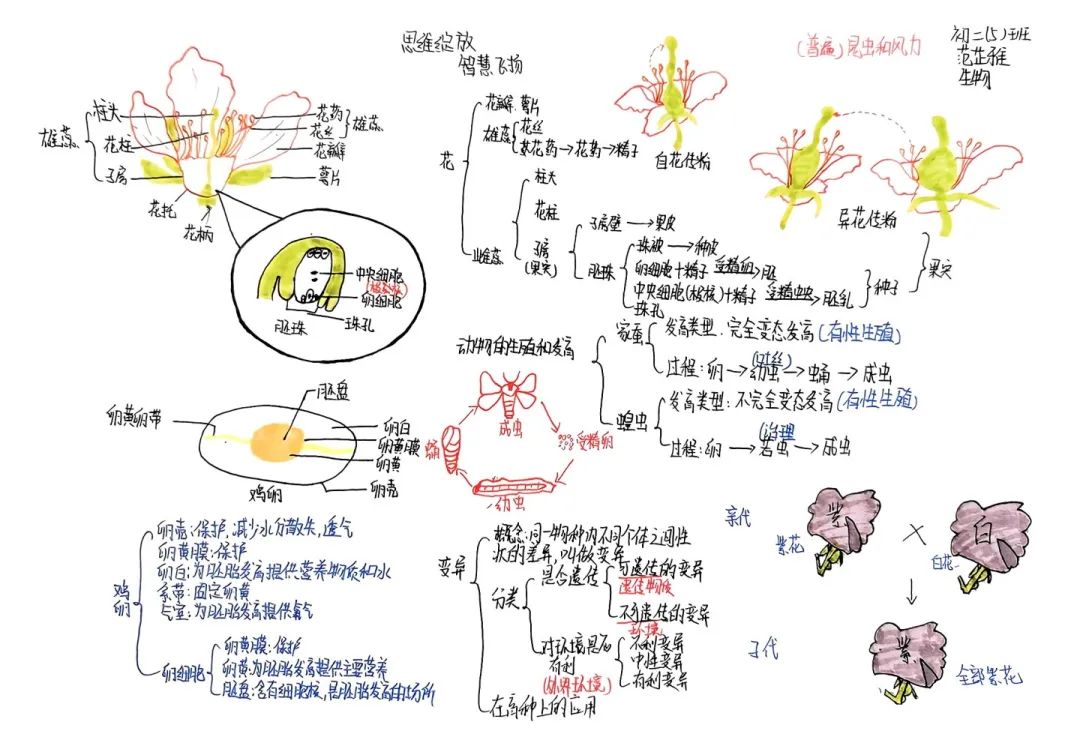 思维绽放
智慧飞扬
(普遍)昆虫和风力
初二(5)班
范芷雅
生物
雄蕊
柱头
花柱
子房
花托
花柄
花药
花丝
雄蕊
花瓣
萼片
中央细胞
(极核)
卵细胞
胚珠
珠孔
花
花瓣 萼片
雄蕊
花丝
花药→花药→精子
雌蕊
柱头
花柱
子房
(果实)
子房壁→果皮
胚珠
珠被→种皮
卵细胞+精子 受精卵→胚
中央细胞(极核)+精子 受精中央→胚乳
珠孔
种子
果实
自花传粉
异花传粉
动物的生殖和发育
家蚕
发育类型:完全变态发育(有性生殖)
(吐丝)
过程:卵→幼虫→蛹→成虫
蝗虫
发育类型:不完全变态发育(有性生殖)
(治理)
过程:卵→若虫→成虫
成虫
受精卵
幼虫
蛹
卵黄卵带
胚盘
卵白
卵黄膜
卵黄
卵壳
鸡卵
鸡卵
卵壳:保护,减少水分散失,透气
卵黄膜:保护
卵白:为胚胎发育提供营养物质和水
系带:固定卵黄
气室:为胚胎发育提供氧气
卵细胞
卵黄膜:保护
卵黄:为胚胎发育提供主要营养
胚盘:含有细胞核,是胚胎发育的场所
变异
概念:同一物种内不同个体之间性
状的差异,叫做变异
分类
是否遗传
可遗传的变异
遗传物质
不可遗传的变异
环境
对环境是否
有利
(外界环境)
不利变异
中性变异
有利变异
在育种上的应用
亲代
紫花
紫
×
白
白花
子代
紫
全部紫花